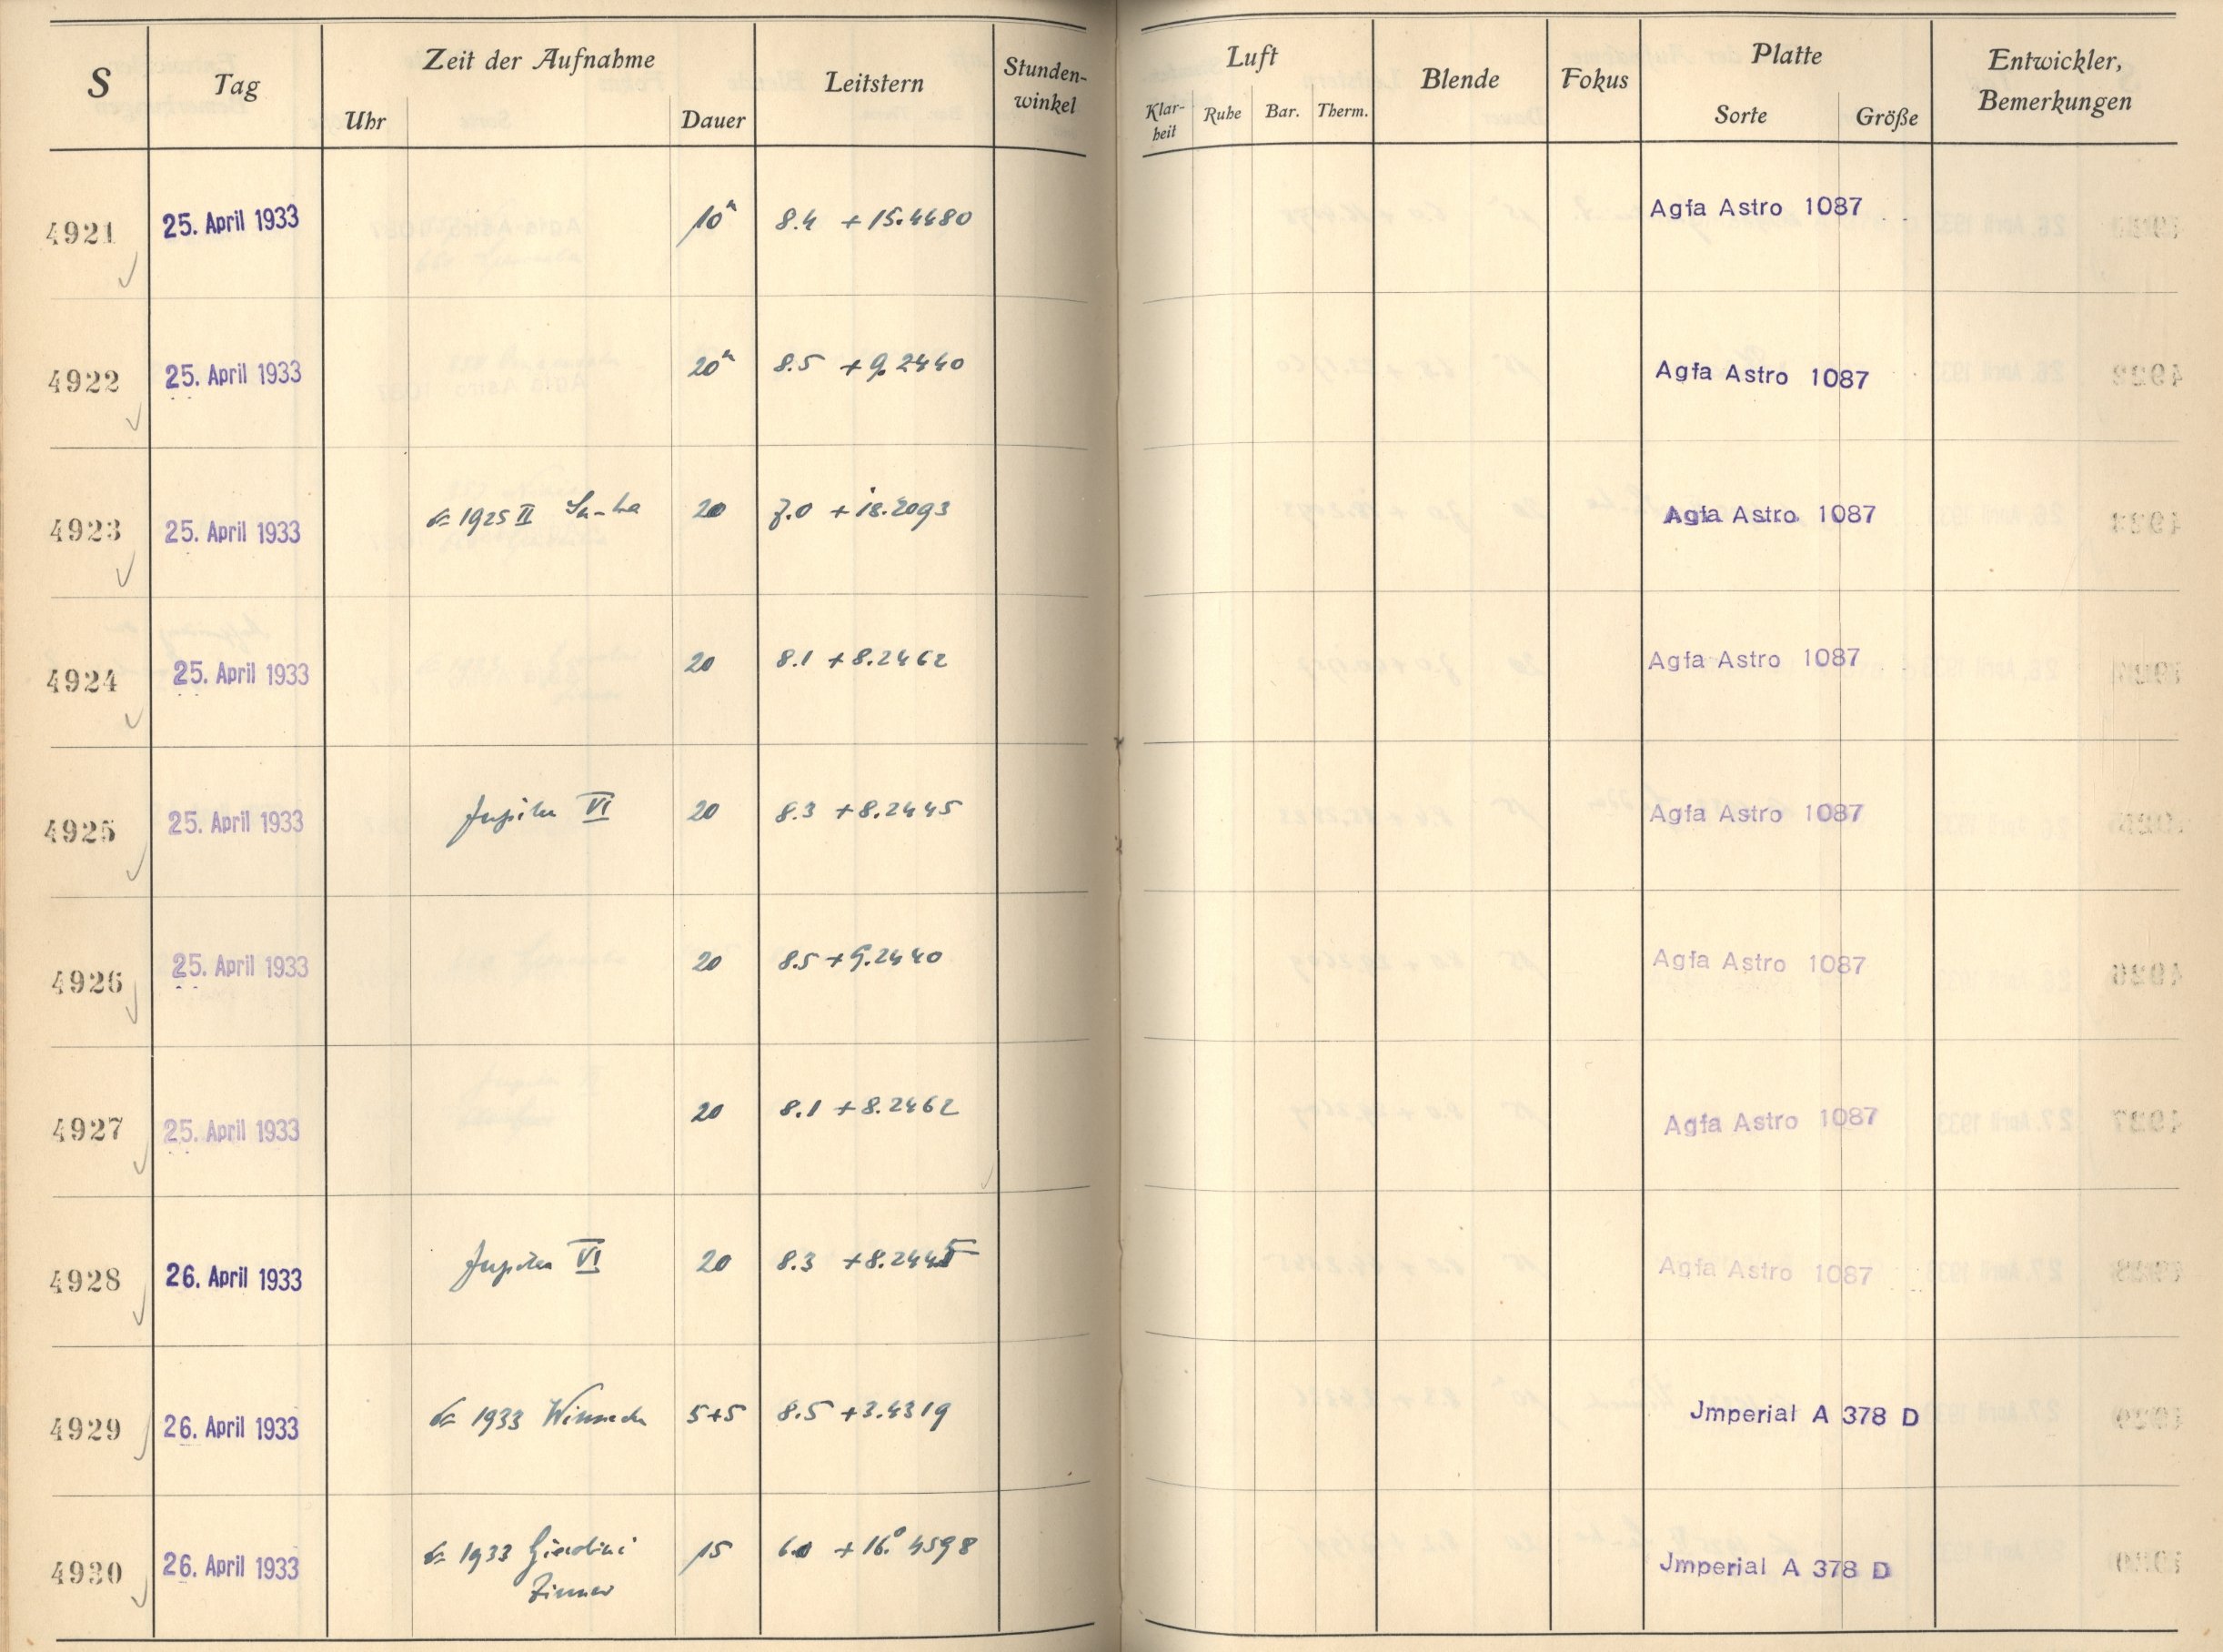 S Tag Zeit der Aufnahme Leitstern Stunden-winkel Luft Blende Fokus Platte Entwickler, Bemerkungen
Uhr Dauer Klar-heit Ruhe Bar. Therm. Sorte Größe
4921 25. April 1933 10ᵐ 8.4 +15.4480 Agfa Astro 1087
4922 25. April 1933 20ᵐ 8.5 +9.2440 Agfa Astro 1087
4923 25. April 1933 1925 II 20 7.0 +18.2093 Agfa Astro 1087
4924 25. April 1933 20 8.1 +8.2462 Agfa Astro 1087
4925 25. April 1933 Jupiter VI 20 8.3 +8.2445 Agfa Astro 1087
4926 25. April 1933 20 8.5 +9.2440 Agfa Astro 1087
4927 25. April 1933 20 8.1 +8.2462 Agfa Astro 1087
4928 26. April 1933 Jupiter VI 20 8.3 +8.2445 Agfa Astro 1087
4929 26. April 1933 1933 Winnecke 5+5 8.5 +3.4319 Jmperial A 378 D
4930 26. April 1933 1933 Giacobini 15 6.0 +16°4598 Jmperial A 378 D
Zinner